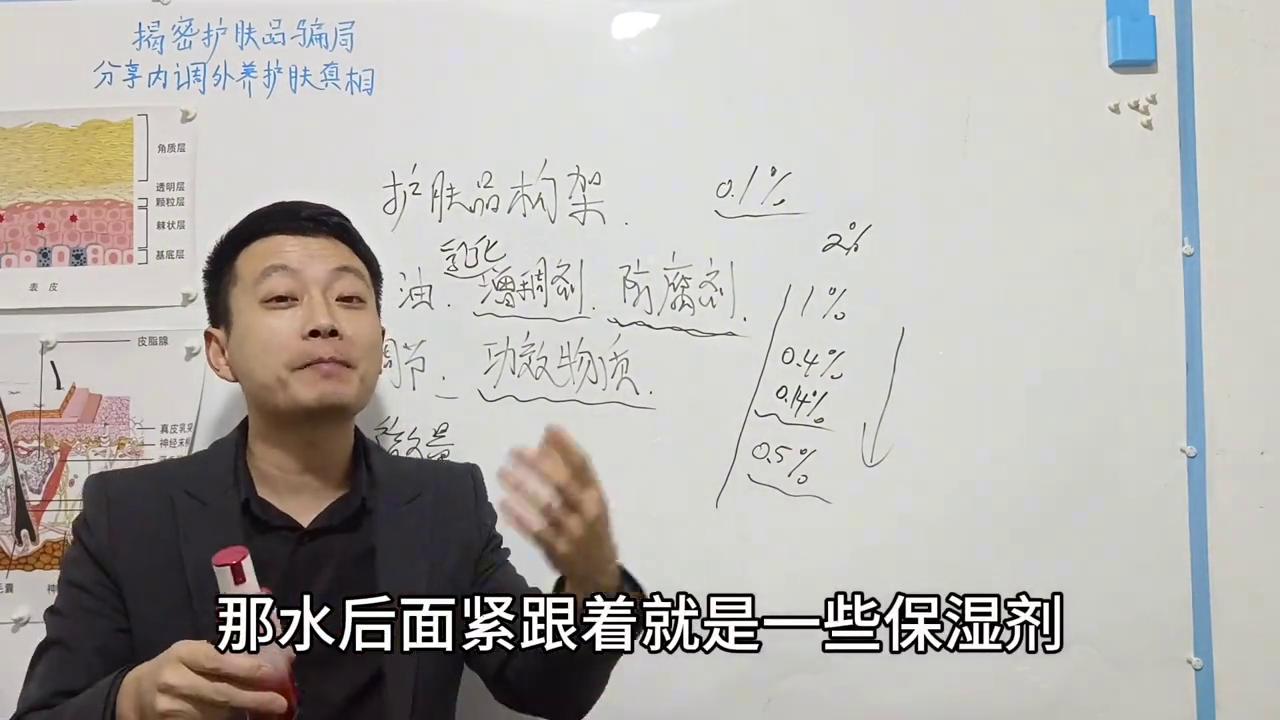 揭密护肤品骗局
分享内调外养护肤真相
角质层
透明层
颗粒层
棘状层
基底层
表 皮
皮脂腺
真皮乳
神经末梢
护肤品构架.
0.1%
2%
乳化
油. 增稠剂. 防腐剂.
1%
调节. 功效物质.
0.4%
0.14%
微量
0.5%
那水后面紧跟着就是一些保湿剂